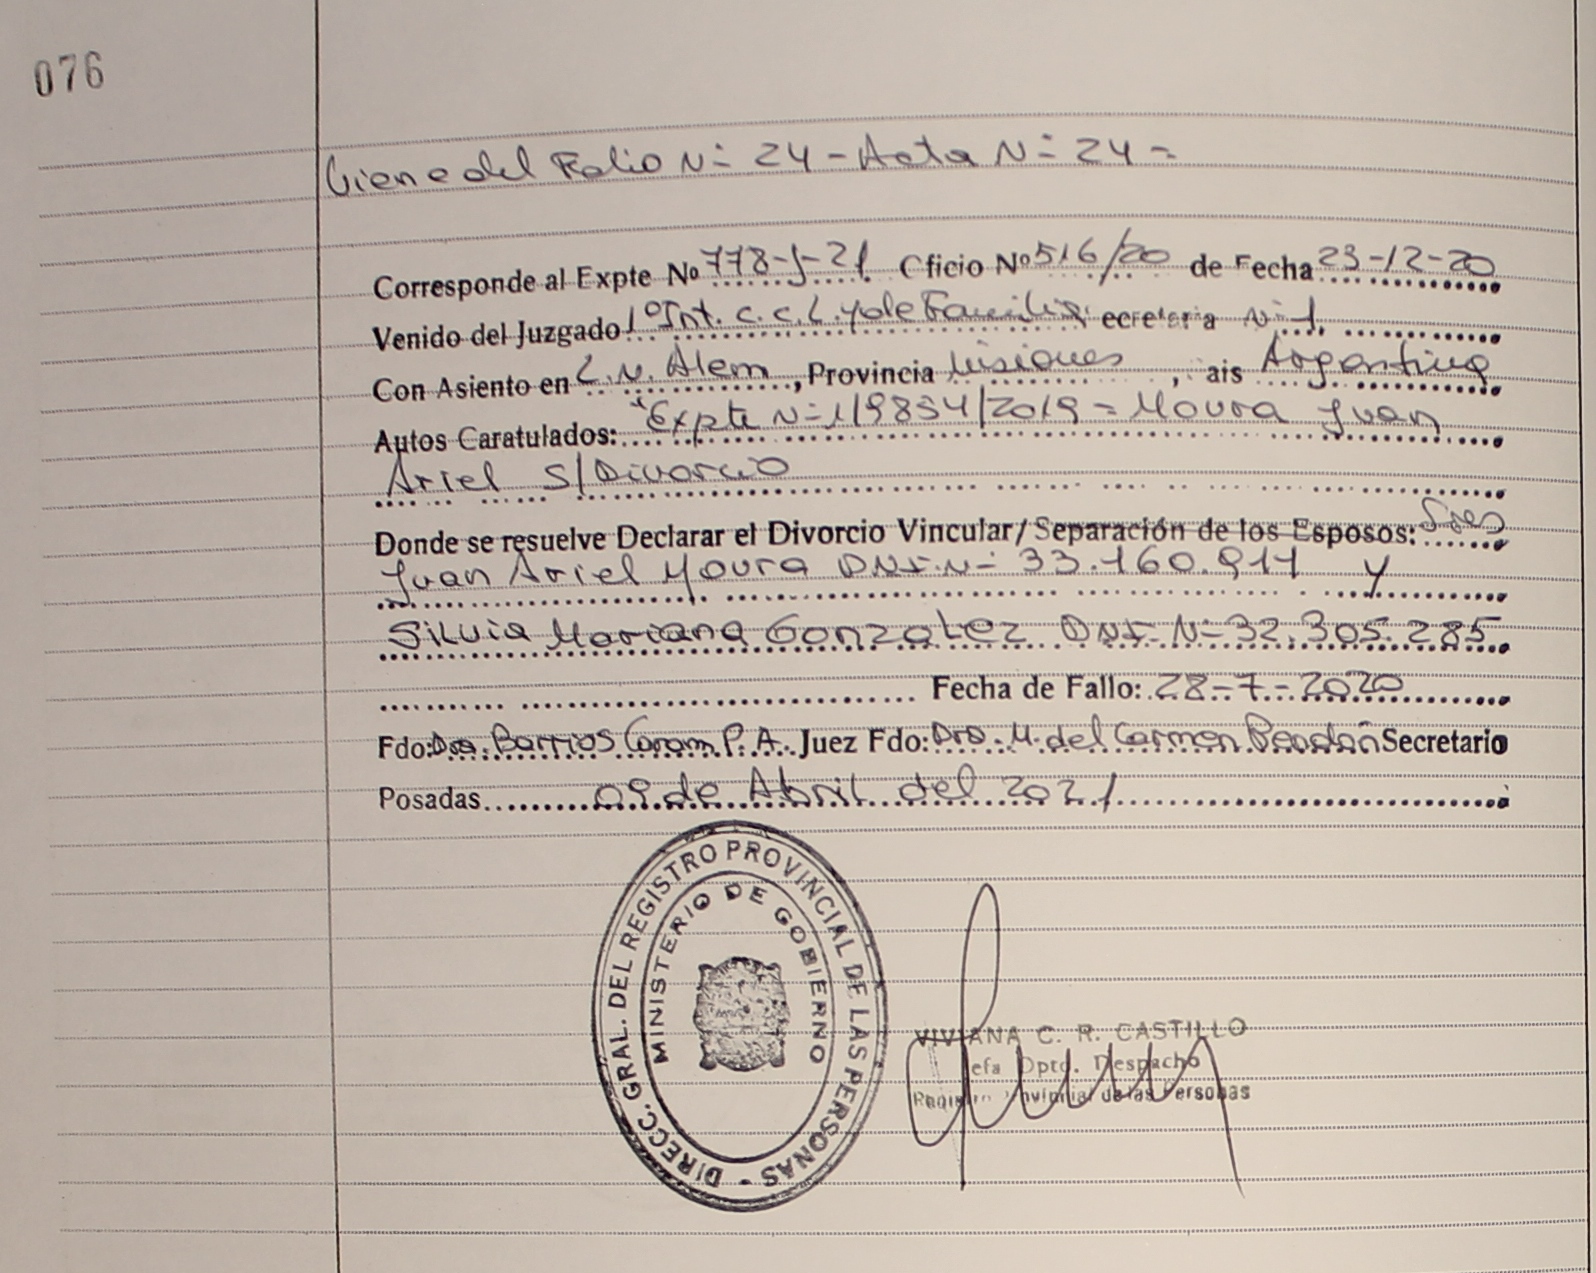 076
Viene del Folio N= 24 - Acta N= 24 =
Corresponde al Expte Nº 778-J-21 Cficio Nº 516/20 de Fecha 23-12-20
Venido del Juzgado 1º Int. C.C.L. y de Familia ecretaria Nº 1.
Con Asiento en L.N. Alem, Provincia Misiones, ais Argentina
Autos Caratulados: "Expte N=119834/2019 = Moura Juan
Ariel S/Divorcio
Donde se resuelve Declarar el Divorcio Vincular/Separación de los Esposos: Sres
Juan Ariel Moura DNI.N= 33.160.911 y
Silvia Mariana Gonzalez DNI. N= 32.305.285
Fecha de Fallo: 28-7-2020
Fdo: Dra. Barrios Caram P.A. Juez Fdo: Dra. M. del Carmen Secretario
Posadas 09 de Abril del 2021
DIRECC. GRAL. DEL REGISTRO PROVINCIAL DE LAS PERSONAS -
MINISTERIO DE GOBIERNO
VIVIANA C. R. CASTILLO
efa Dpto. Despacho
Registro Provincial de las Personas